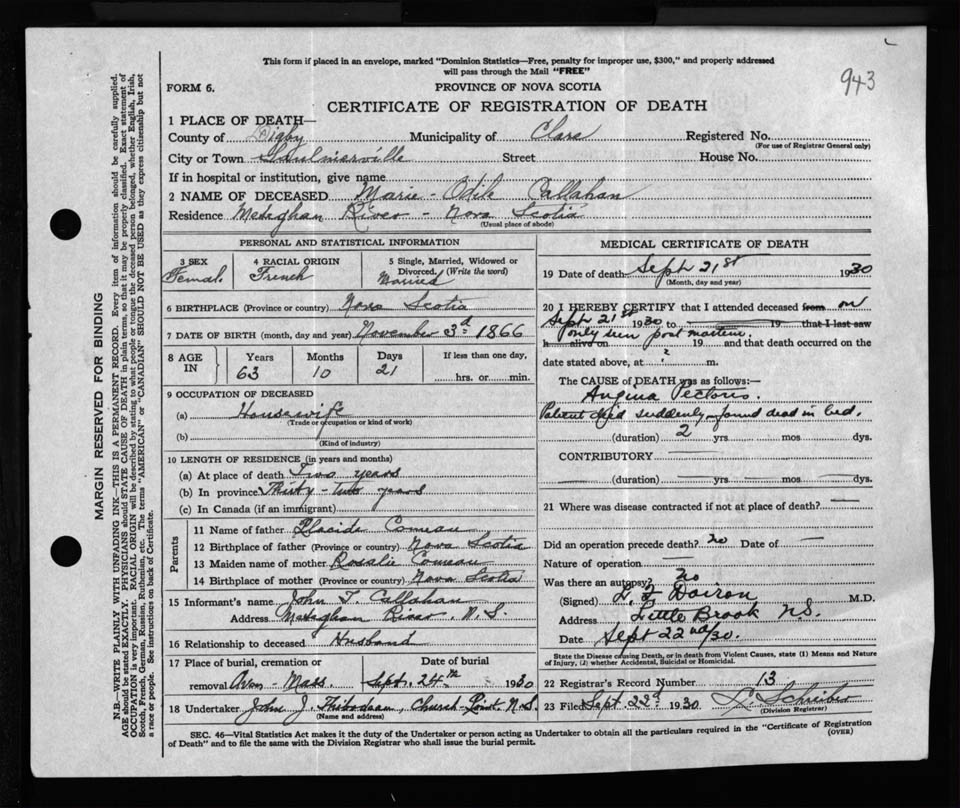 This form if placed in an envelope, marked "Dominion Statistics—Free, penalty for improper use, $300," and properly addressed
will pass through the Mail "FREE"
943
FORM 6.
PROVINCE OF NOVA SCOTIA
CERTIFICATE OF REGISTRATION OF DEATH
1 PLACE OF DEATH—
County of Digby Municipality of Clare Registered No.
(For use of Registrar General only)
City or Town Saulnierville Street House No.
If in hospital or institution, give name
2 NAME OF DECEASED Marie - Odile Callahan
Residence Meteghan River - Nova Scotia
(Usual place of abode)
PERSONAL AND STATISTICAL INFORMATION
3 SEX 4 RACIAL ORIGIN 5 Single, Married, Widowed or
Divorced. (Write the word)
Femal. French Married
6 BIRTHPLACE (Province or country) Nova Scotia
7 DATE OF BIRTH (month, day and year) November 3d 1866
8 AGE IN Years Months Days If less than one day,
63 10 21 hrs. or min.
9 OCCUPATION OF DECEASED
(a) Housewife
(Trade or occupation or kind of work)
(b)
(Kind of industry)
10 LENGTH OF RESIDENCE (in years and months)
(a) At place of death Two years
(b) In province Thirty-two years
(c) In Canada (if an immigrant)
Parents
11 Name of father Placide Comeau
12 Birthplace of father (Province or country) Nova Scotia
13 Maiden name of mother Rosalie Comeau
14 Birthplace of mother (Province or country) Nova Scotia
15 Informant's name John T. Callahan
Address Meteghan River. N.S.
16 Relationship to deceased Husband
17 Place of burial, cremation or Date of burial
removal Avon - Mass Sept. 24th 1930
18 Undertaker John J. Thibodeau, Church Point N.S.
(Name and address)
MEDICAL CERTIFICATE OF DEATH
19 Date of death Sept 21st 1930
(Month, day and year)
20 I HEREBY CERTIFY that I attended deceased from on
Sept 21st 1930 to 19 that I last saw
h alive on only seen post mortem. 19 and that death occurred on the
date stated above, at ? m.
The CAUSE of DEATH was as follows:—
Angina Pectoris.
Patient died suddenly - found dead in bed.
(duration) 2 yrs. mos dys.
CONTRIBUTORY
(duration) yrs. mos. dys.
21 Where was disease contracted if not at place of death?
Did an operation precede death? No Date of
Nature of operation
Was there an autopsy? No
(Signed) Doiron M.D.
Address Little Brook N.S.
Date Sept 22nd/30.
State the Disease causing Death, or in death from Violent Causes, state (1) Means and Nature
of Injury, (2) whether Accidental, Suicidal or Homicidal.
22 Registrar's Record Number 13
23 Filed Sept. 22d 1930
(Division Registrar)
SEC. 46—Vital Statistics Act makes it the duty of the Undertaker or person acting as Undertaker to obtain all the particulars required in the "Certificate of Registration
of Death" and to file the same with the Division Registrar who shall issue the burial permit. (OVER)
MARGIN RESERVED FOR BINDING
N.B.—WRITE PLAINLY WITH UNFADING INK—THIS IS A PERMANENT RECORD. Every item of information should be carefully supplied.
AGE should be stated EXACTLY. PHYSICIANS should STATE CAUSE OF DEATH in plain terms, so that it may be properly classified. Exact statement of
OCCUPATION is very important. RACIAL ORIGIN will be described by stating to what people or tongue the deceased person belonged, whether English, Irish,
Scotch, French, German, Russian, Ruthenian, etc. The terms "AMERICAN" or "CANADIAN" SHOULD NOT BE USED as they express citizenship but not
a race or people. See instructions on back of Certificate.